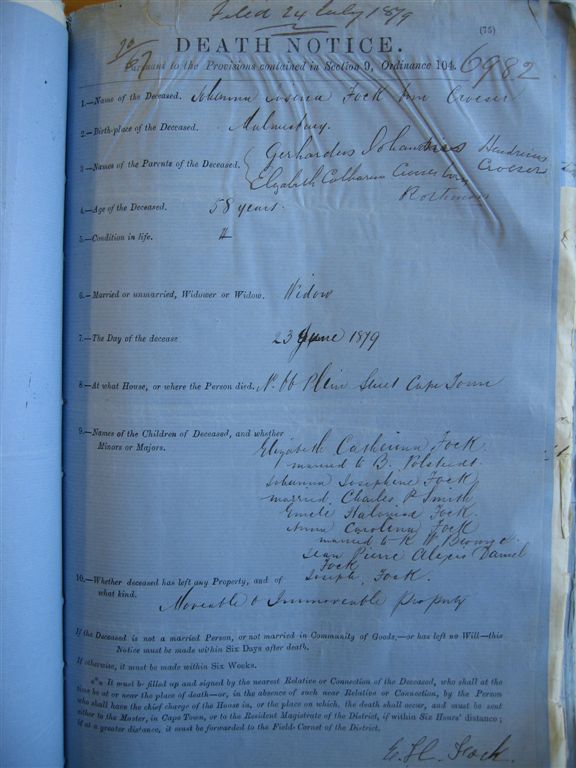 Filed 24 July 1879
(75)
DEATH NOTICE.
Pursuant to the Provisions contained in Section 9, Ordinance 104.
6982
1.—Name of the Deceased. Johanna Fock born Croeser
2.—Birth-place of the Deceased. Malmesbury.
3.—Names of the Parents of the Deceased. Gerhardus Johannes Hendricus Croeser
Elizabeth Catharina Croeser born
4.—Age of the Deceased. 58 years.
5.—Condition in life.
6.—Married or unmarried, Widower or Widow. Widow
7.—The Day of the decease 23 June 1879
8.—At what House, or where the Person died. No. 66 Plein Street Cape Town
9.—Names of the Children of Deceased, and whether
Minors or Majors.
Elizabeth Catherina Fock
married to B.
Johanna Josephine Fock
married Charles P Smith
Fock.
Anna Carolina Fock
married to R W
Jean Pierre Alexis Daniel
Fock
Joseph Fock.
10.—Whether deceased has left any Property, and of
what kind.
Moveable & Immoveable property
If the Deceased is not a married Person, or not married in Community of Goods,—or has left no Will—this
Notice must be made within Six Days after death.
If otherwise, it must be made within Six Weeks.
*** It must be filled up and signed by the nearest Relative or Connection of the Deceased, who shall at the
time be at or near the place of death—or, in the absence of such near Relative or Connection, by the Person
who shall have the chief charge of the House in, or the place on which, the death shall occur, and must be sent
either to the Master, in Cape Town, or to the Resident Magistrate of the District, if within Six Hours' distance;
if at a greater distance, it must be forwarded to the Field-Cornet of the District.
Fock.